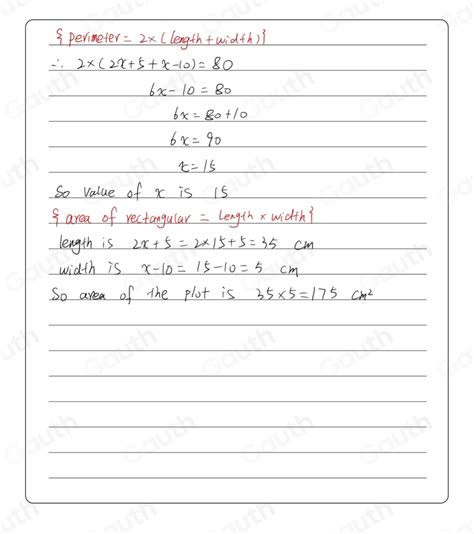 { perimeter = 2×(length+width)}
∴ 2×(2x+5+x-10)=80
6x-10=80
6x=80+10
6x=90
x=15
So value of x is 15
{ area of rectangular = length × width}
length is 2x+5=2×15+5=35 cm
width is x-10=15-10=5 cm
So area of the plot is 35×5=175 cm²